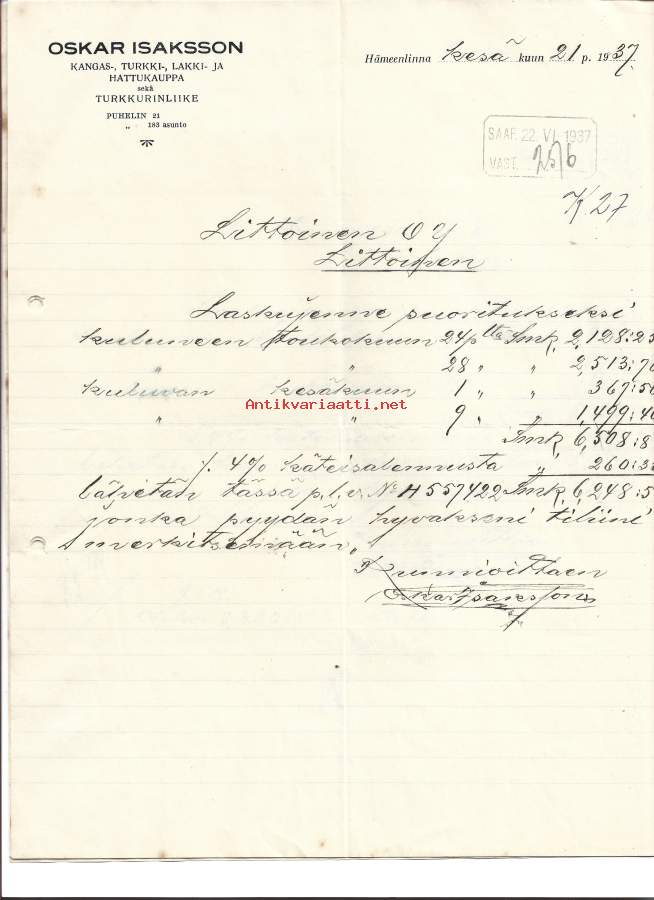 OSKAR ISAKSSON
KANGAS-, TURKKI-, LAKKI- JA
HATTUKAUPPA
sekä
TURKKURINLIIKE
PUHELIN 21
„ 183 asunto
Hämeenlinna kesä kuun 21 p. 1937.
SAAP. 22. VI. 1937
VAST.
K 27
Littoinen OY
Littoinen
Laskujenne suoritukseksi
kuluneen toukokuun 24 p ltä Smk. 2,128:25
„ „ 28 „ „ 2,513:70
kuluvan kesäkuun 1 „ „ 367:50
Antikvariaatti.net
„ „ 9 „ „ 1,499:40
Smk. 6,508:8
٪ 4% käteisalennusta „ 260:3
lähetän tässä p.l.v. No H 557422 Smk. 6,248:5
jonka pyydän hyväkseni tiliini
merkitsemään.
Kunnioittaen
Oskar Isaksson